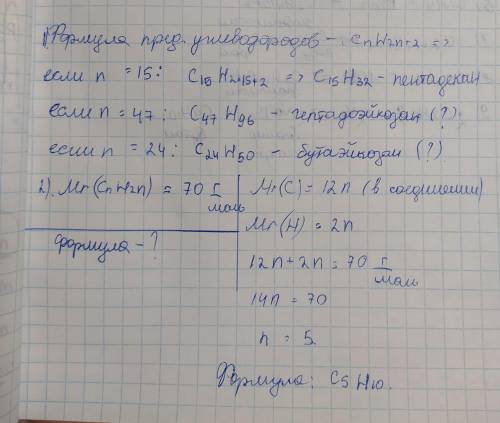 1) Формула пред. углеводородов - CnH2n+2 =>
если n = 15: C15H2·15+2 => C15H32 - пентадекан
если n = 47: C47H96 - гептадоэйкозан (?)
если n = 24: C24H50 - бутаэйкозан (?)
2). Mr (CnH2n) = 70 г/моль
Формула - ?
Mr(C) = 12n (в соединении)
Mr(H) = 2n
12n + 2n = 70 г/моль
14n = 70
n = 5
Формула: C5H10.